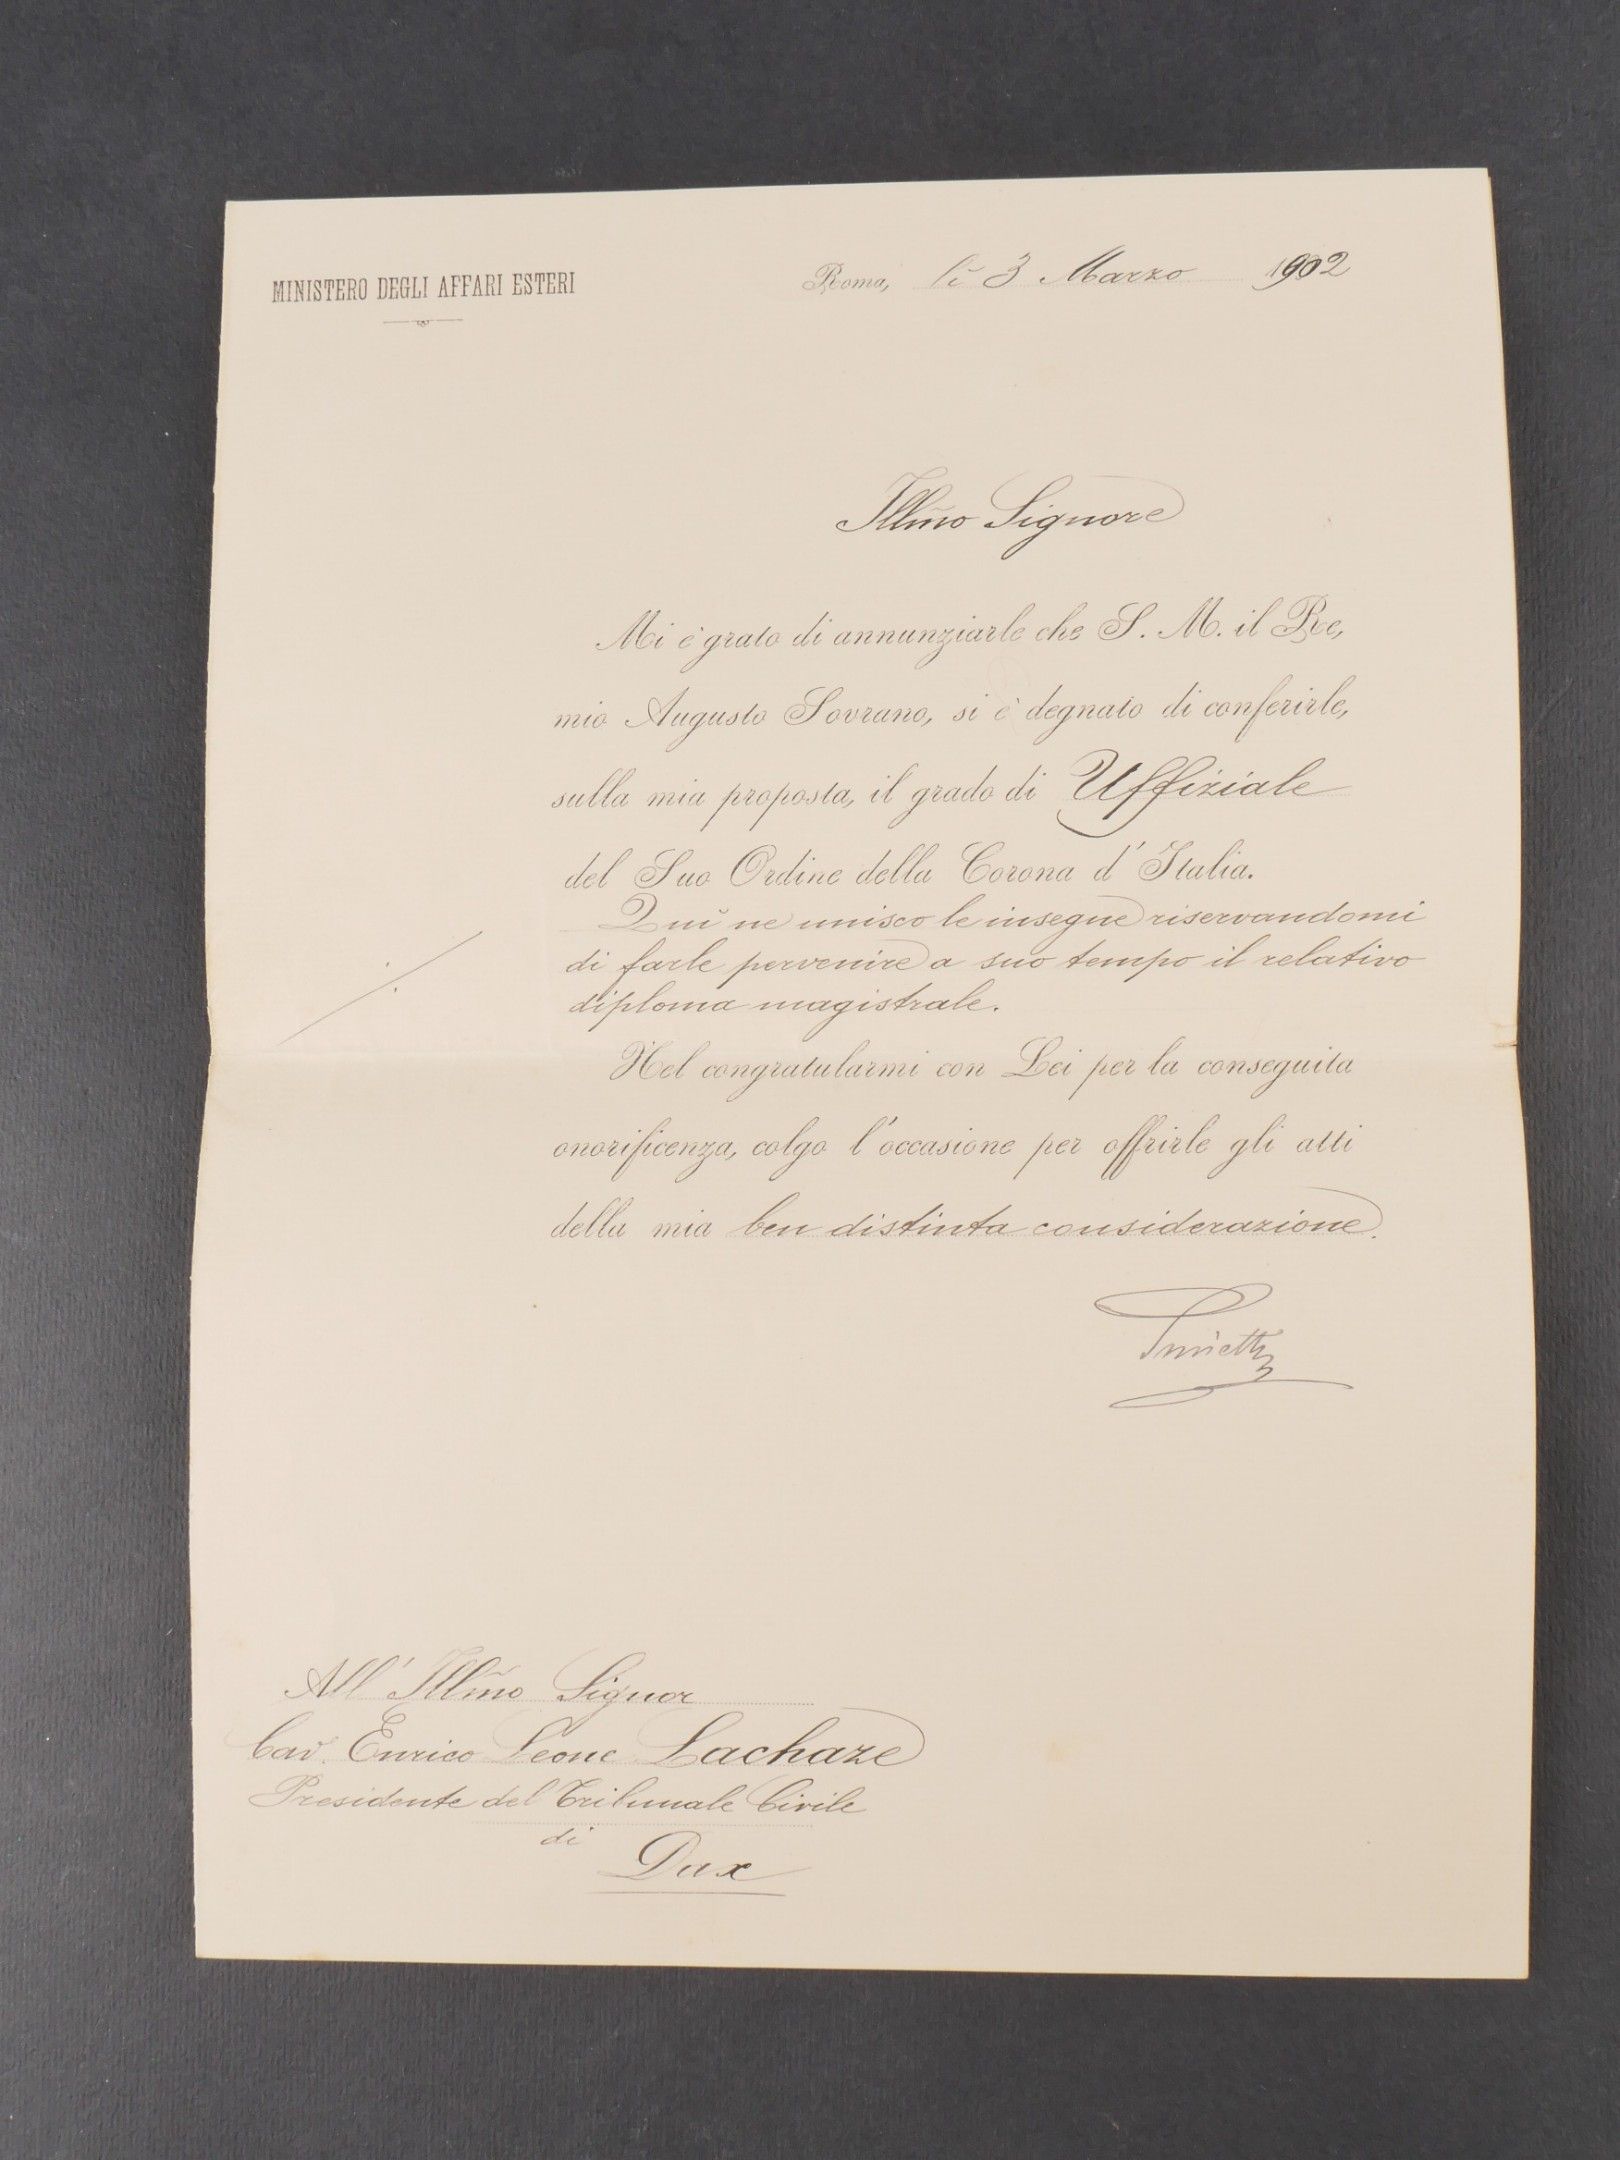 MINISTERO DEGLI AFFARI ESTERI
Roma, lì 3 Marzo 1902
Illm̃o Signore
Mi è grato di annunziarle che S. M. il Re,
mio Augusto Sovrano, si è degnato di conferirle,
sulla mia proposta, il grado di Uffiziale
del Suo Ordine della Corona d'Italia.
Qui ne unisco le insegne riservandomi
di farle pervenire a suo tempo il relativo
diploma magistrale.
Nel congratularmi con Lei per la conseguita
onorificenza, colgo l'occasione per offrirle gli atti
della mia ben distinta considerazione.
All' Illm̃o Signor
Cav. Enrico Leone Lachaze
Presidente del Tribunale Civile
di
Dax